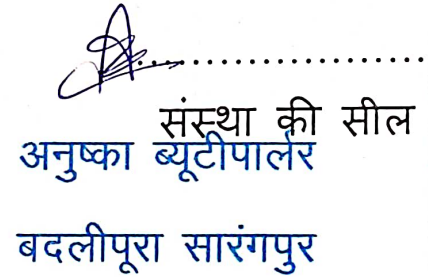 ....................
संस्था की सील
अनुष्का ब्यूटीपार्लर
बदलीपूरा सारंगपुर